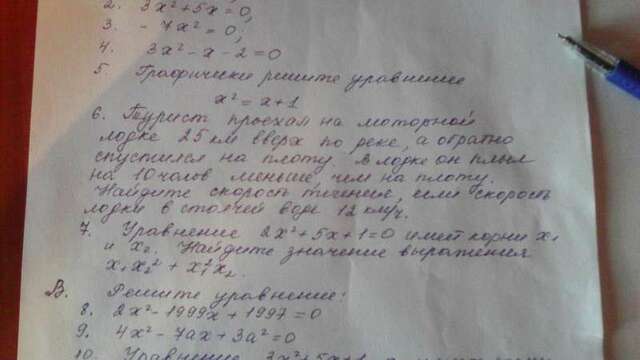 2. 3x² + 5x = 0,
3. - 7x² = 0,
4. 3x² - x - 2 = 0
5. Графически решите уравнение
x² = x + 1
6. Турист проехал на моторной
лодке 25 км вверх по реке, а обратно
спустился на плоту. В лодке он плыл
на 10 часов меньше, чем на плоту.
Найдите скорость течения, если скорость
лодки в стоячей воде 12 км/ч.
7. Уравнение 2x² + 5x + 1 = 0 имеет корни x₁
и x₂. Найдите значение выражения
x₁x₂² + x₁²x₂.
В. Решите уравнение:
8. 2x² - 1999x + 1997 = 0
9. 4x² - 7ax + 3a² = 0
10. Уравнение 3x² + 5x + 1